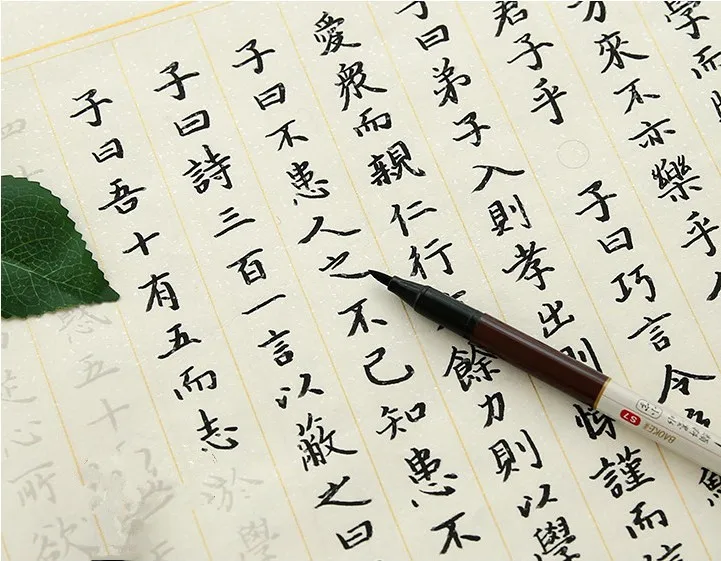 學而
來不亦樂乎人
君子乎 子曰巧言令
子曰弟子入則孝出則悌謹而信
愛眾而親仁行餘力則以學
子曰不患人之不己知患不
子曰詩三百一言以蔽之曰
子曰吾十有五而志於學
惑五十
心所欲
S7
BAOKE